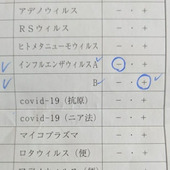 アデノウィルス - ・ +
RSウィルス - ・ +
ヒトメタニューモウィルス - ・ +
インフルエンザウィルスA - ・ +
B - ・ +
covid-19（抗原） - ・ +
covid-19（ニア法） - ・ +
マイコプラズマ - ・ +
ロタウィルス（便） - ・ +